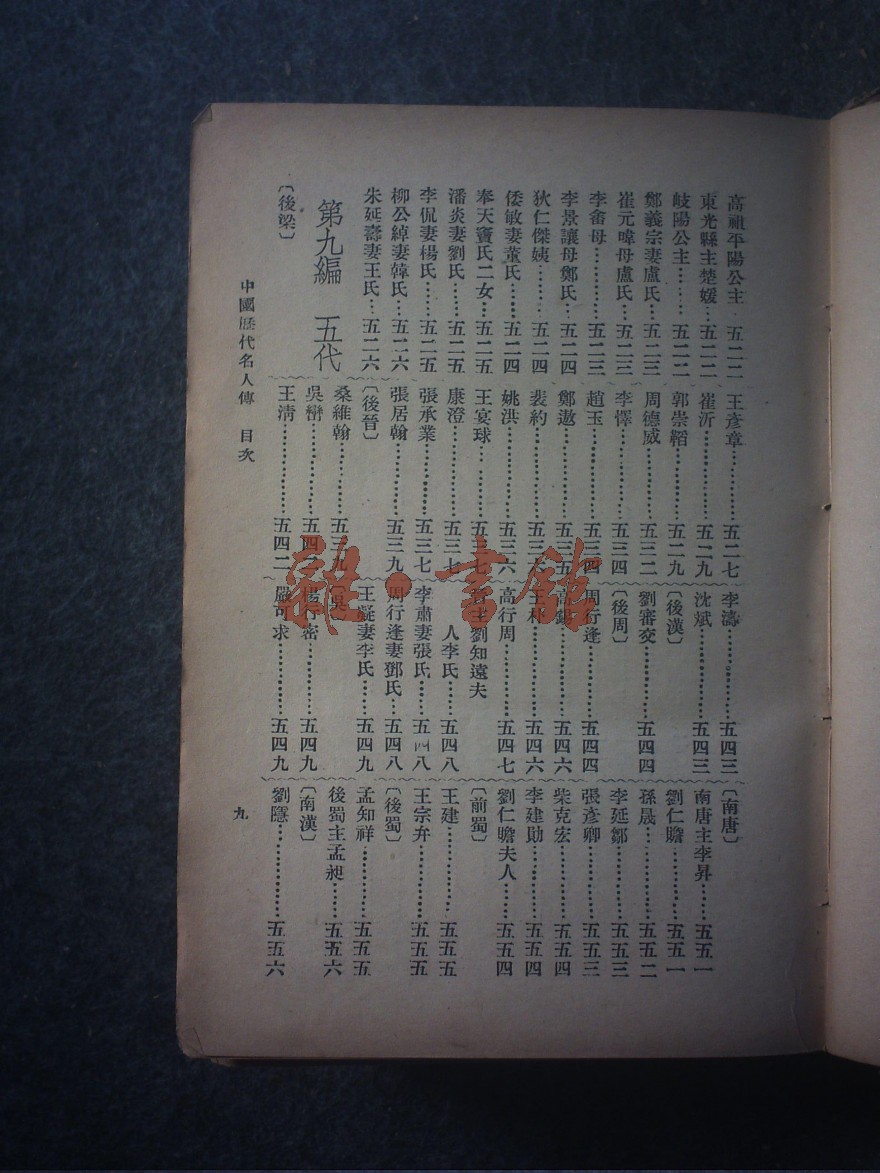 高祖平陽公主 五二二
東光縣主楚媛 五二二
岐陽公主 五二二
鄭義宗妻盧氏 五二三
崔元暐母盧氏 五二三
李畬母 五二三
李景讓母鄭氏 五二四
狄仁傑姨 五二四
倭敏妻董氏 五二四
奉天竇氏二女 五二五
潘炎妻劉氏 五二五
李侃妻楊氏 五二五
柳公綽妻韓氏 五二六
朱延壽妻王氏 五二六
第九編 五代
〔後梁〕
王彥章 五二七
崔沂 五二九
郭崇韜 五二九
周德威 五三二
李懌 五三四
趙玉 五三四
鄭遨 五三五
裴約 五三六
姚洪 五三六
王宴球
康澄 五三七
張承業 五三七
張居翰 五三九
〔後晉〕
桑維翰 五三九
吳巒
王淸 五四二
李濤 五四三
沈斌 五四三
〔後漢〕
劉審交 五四四
〔後周〕
周行逢 五四四
五四六
王朴 五四六
高行周 五四七
劉知遠夫
人李氏 五四八
李肅妻張氏 五四八
周行逢妻鄧氏 五四八
王凝妻李氏 五四九
〔吳〕
楊行密 五四九
嚴可求 五四九
〔南唐〕
南唐主李昇 五五一
劉仁贍 五五一
孫晟 五五二
李延鄒 五五三
張彥卿 五五三
柴克宏 五五四
李建勛 五五四
劉仁贍夫人 五五四
〔前蜀〕
王建 五五五
王宗弁 五五五
〔後蜀〕
孟知祥 五五五
後蜀主孟昶 五五六
〔南漢〕
劉隱 五五六
中國歷代名人傳 目次
九
雜·書館